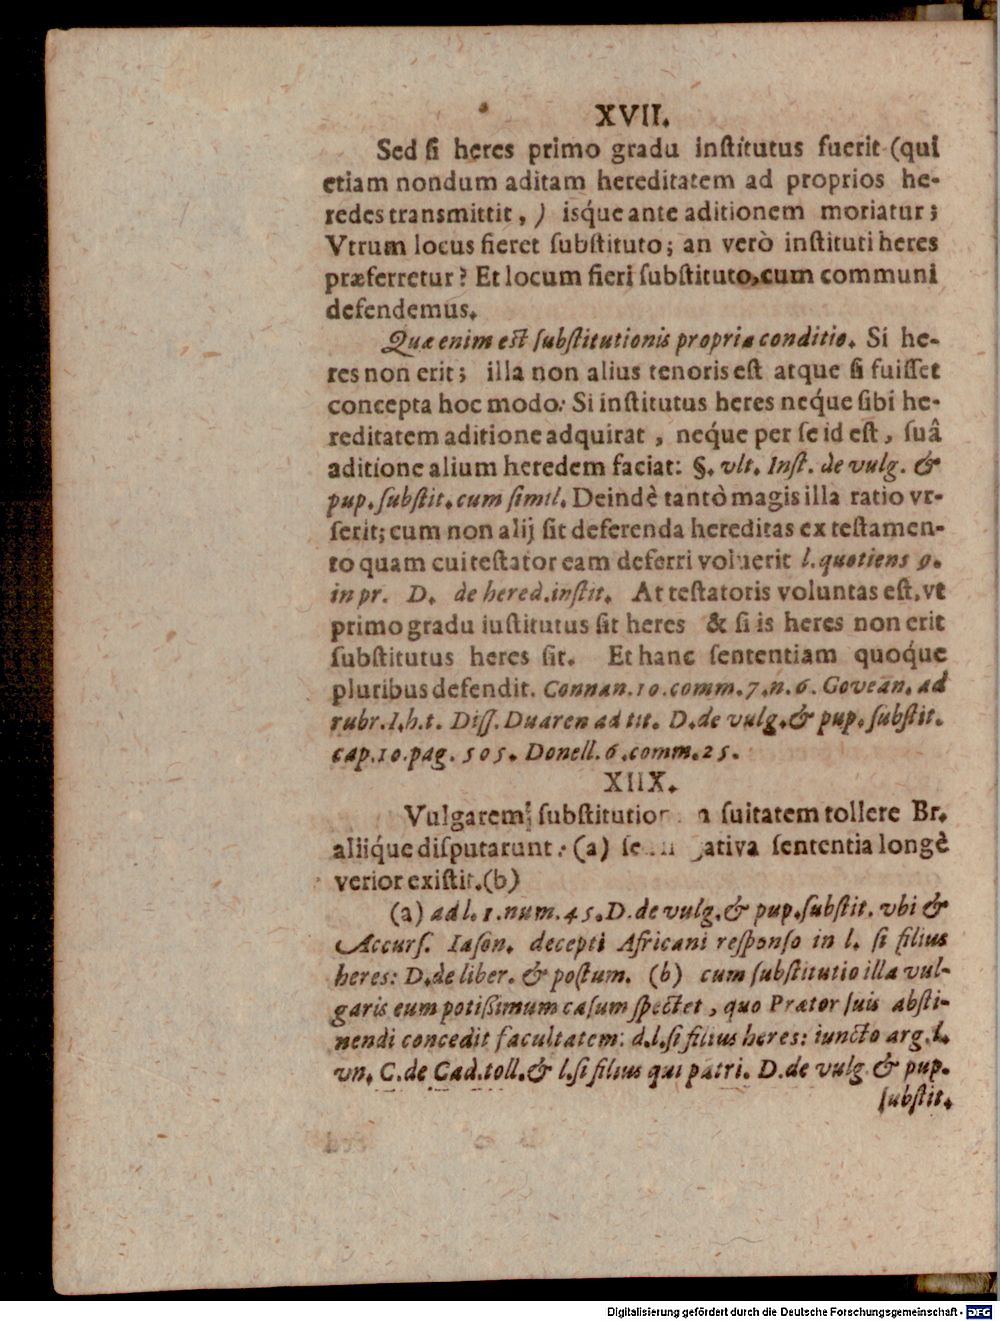 XVII.
Sed ſi heres primo gradu inſtitutus fuerit (qui
etiam nondum aditam hereditatem ad proprios he-
redes transmittit, ) isq́ue ante aditionem moriatur;
Vtrum locus fieret ſubſtituto; an verò inſtituti heres
præferretur? Et locum fieri ſubſtituto, cum communi
defendemus.
Quæ enim eſt ſubſtitutionis propria conditio. Si he-
res non erit; illa non alius tenoris eſt atque ſi fuiſſet
concepta hoc modo: Si inſtitutus heres neq́ue ſibi he-
reditatem aditione adquirat, neq́ue per ſe id eſt, ſuâ
aditione alium heredem faciat: §. vlt. Inſt. de vulg. &
pup. ſubſtit. cum ſimil. Deindè tantò magis illa ratio vr-
ſerit; cum non alij ſit deferenda hereditas ex teſtamen-
to quam cui teſtator eam deferri voluerit l. quotiens 9.
in pr. D. de hered. inſtit. At teſtatoris voluntas eſt, vt
primo gradu iuſtitutus ſit heres & ſi is heres non erit
ſubſtitutus heres ſit. Et hanc ſententiam quoq́ue
pluribus defendit. Connan. 10. comm. 7. n. 6. Govean. ad
rubr. I. h. t. Diſſ. Duaren ad tit. D. de vulg. & pup. ſubſtit.
cap. 10. pag. 505. Donell. 6. comm. 25.
XIIX.
Vulgarem ſubſtitutio ſuitatem tollere Br.
aliiq́ue diſputarunt: (a) ſe ativa ſententia longè
verior exiſtit. (b)
(a) ad l. 1. num. 45. D. de vulg. & pup. ſubſtit. vbi &
Accurſ. Iaſon. decepti Africani reſponſo in l. ſi filius
heres: D. de liber. & poſtum. (b) cum ſubſtitutio illa vul-
garis eum potiſſimum caſum ſpectet, quo Prætor ſuis abſti-
nendi concedit facultatem: d. l. ſi filius heres: iuncto arg. l.
vn. C. de Cad. toll. & l. ſi filius qui patri. D. de vulg. & pup.
ſubſtit.
Digitalisierung gefördert durch die Deutsche Forschungsgemeinschaft - DFG